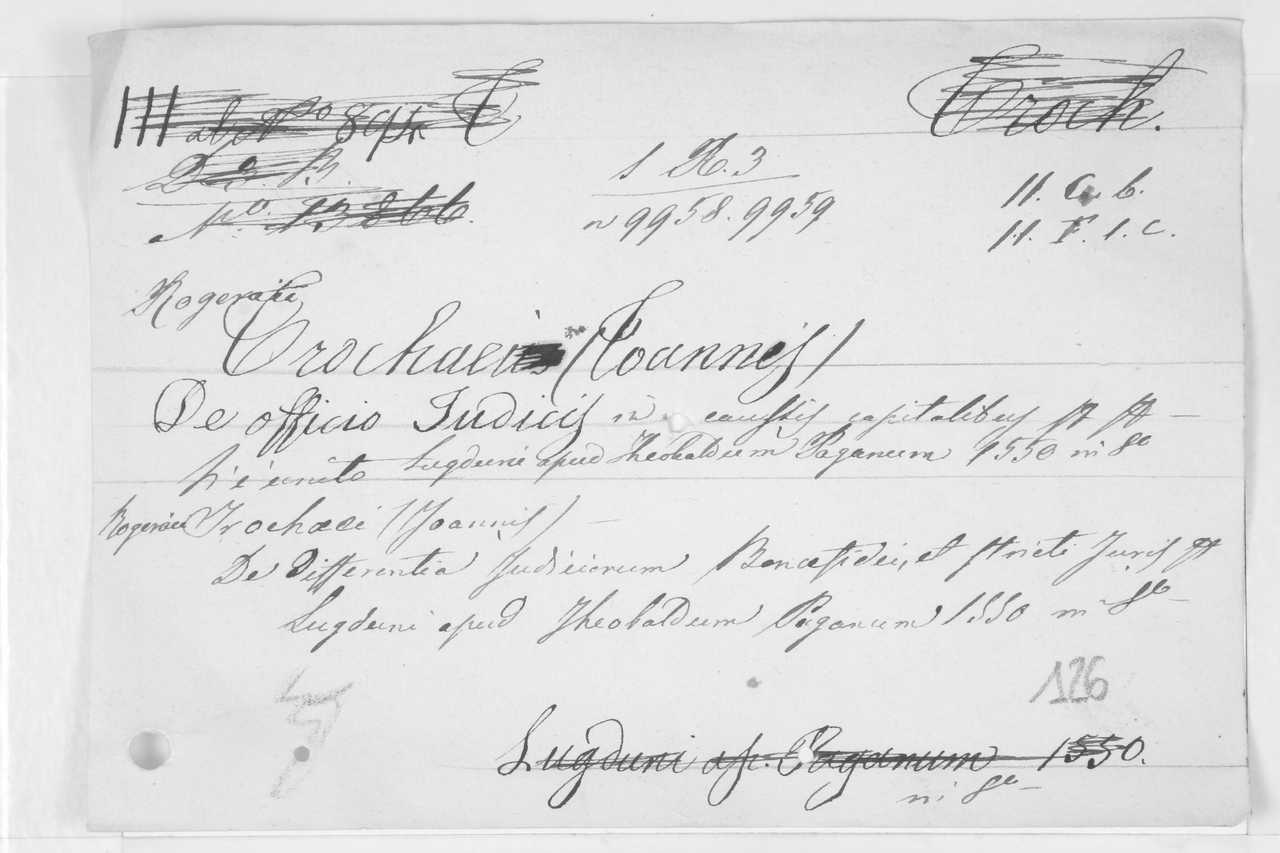 Troch.
S. R. 3
n 9958. 9959
H. C. b.
H. F. 1. C.
No. 13866.
Rogeraite
Trochaei (Joannis)
De officio Iudicis in caussis capitalibus ff ff —
Lugduni apud Theobaldum Paganum 1550 in 8o
Trochaei (Joannis) —
De differentia Judiciorum Bonaefidei, et stricti Juris ff
Lugduni apud Theobaldum Paganum 1550 in 8o —
126
Lugduni ap. Paganum 1550.
in 8o —